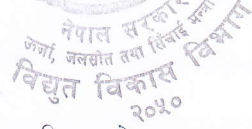 नेपाल सरकार
ऊर्जा, जलस्रोत तथा सिंचाई मन्त्रा
विद्युत विकास विभाग
२०५०